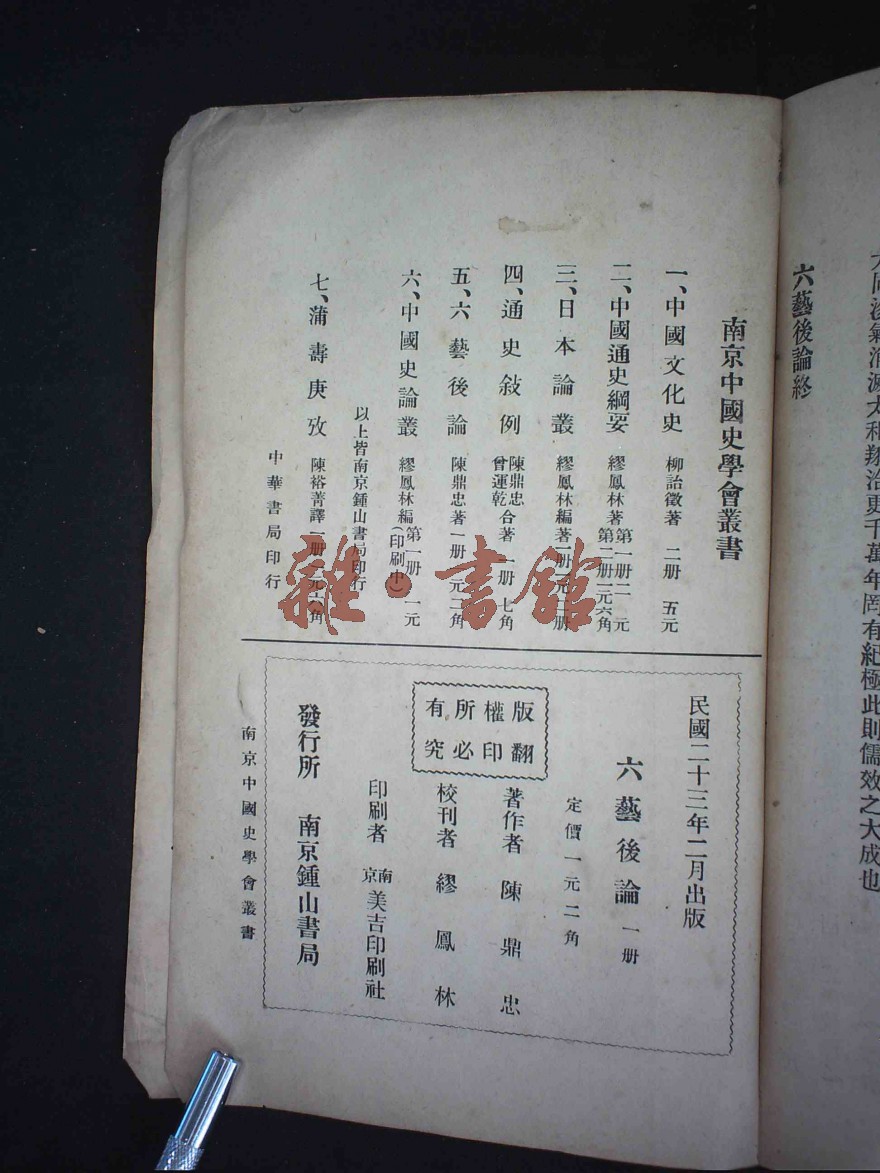 大成也
更千萬年罔有紀極此則儒效之
六藝後論終
南京中國史學會叢書
一、中國文化史 柳詒徵著 二册 五元
二、中國通史綱要 繆鳳林著 第一册二元 第二册二元六角
三、日本論叢 繆鳳林編著
四、通史敍例 陳鼎忠 曾運乾 合著 一册 七角
五、六藝後論 陳鼎忠著 一册 一元二角
六、中國史論叢 繆鳳林編 第一册 一元 (印刷中)
以上皆南京鍾山書局印行
七、蒲壽庚攷 陳裕菁譯 一册
中華書局印行
雜·書館
民國二十三年二月出版
六藝後論 一册
定價一元二角
版權所有
翻印必究
著作者 陳鼎忠
校刊者 繆鳳林
印刷者 南京 美吉印刷社
發行所 南京鍾山書局
南京中國史學會叢書